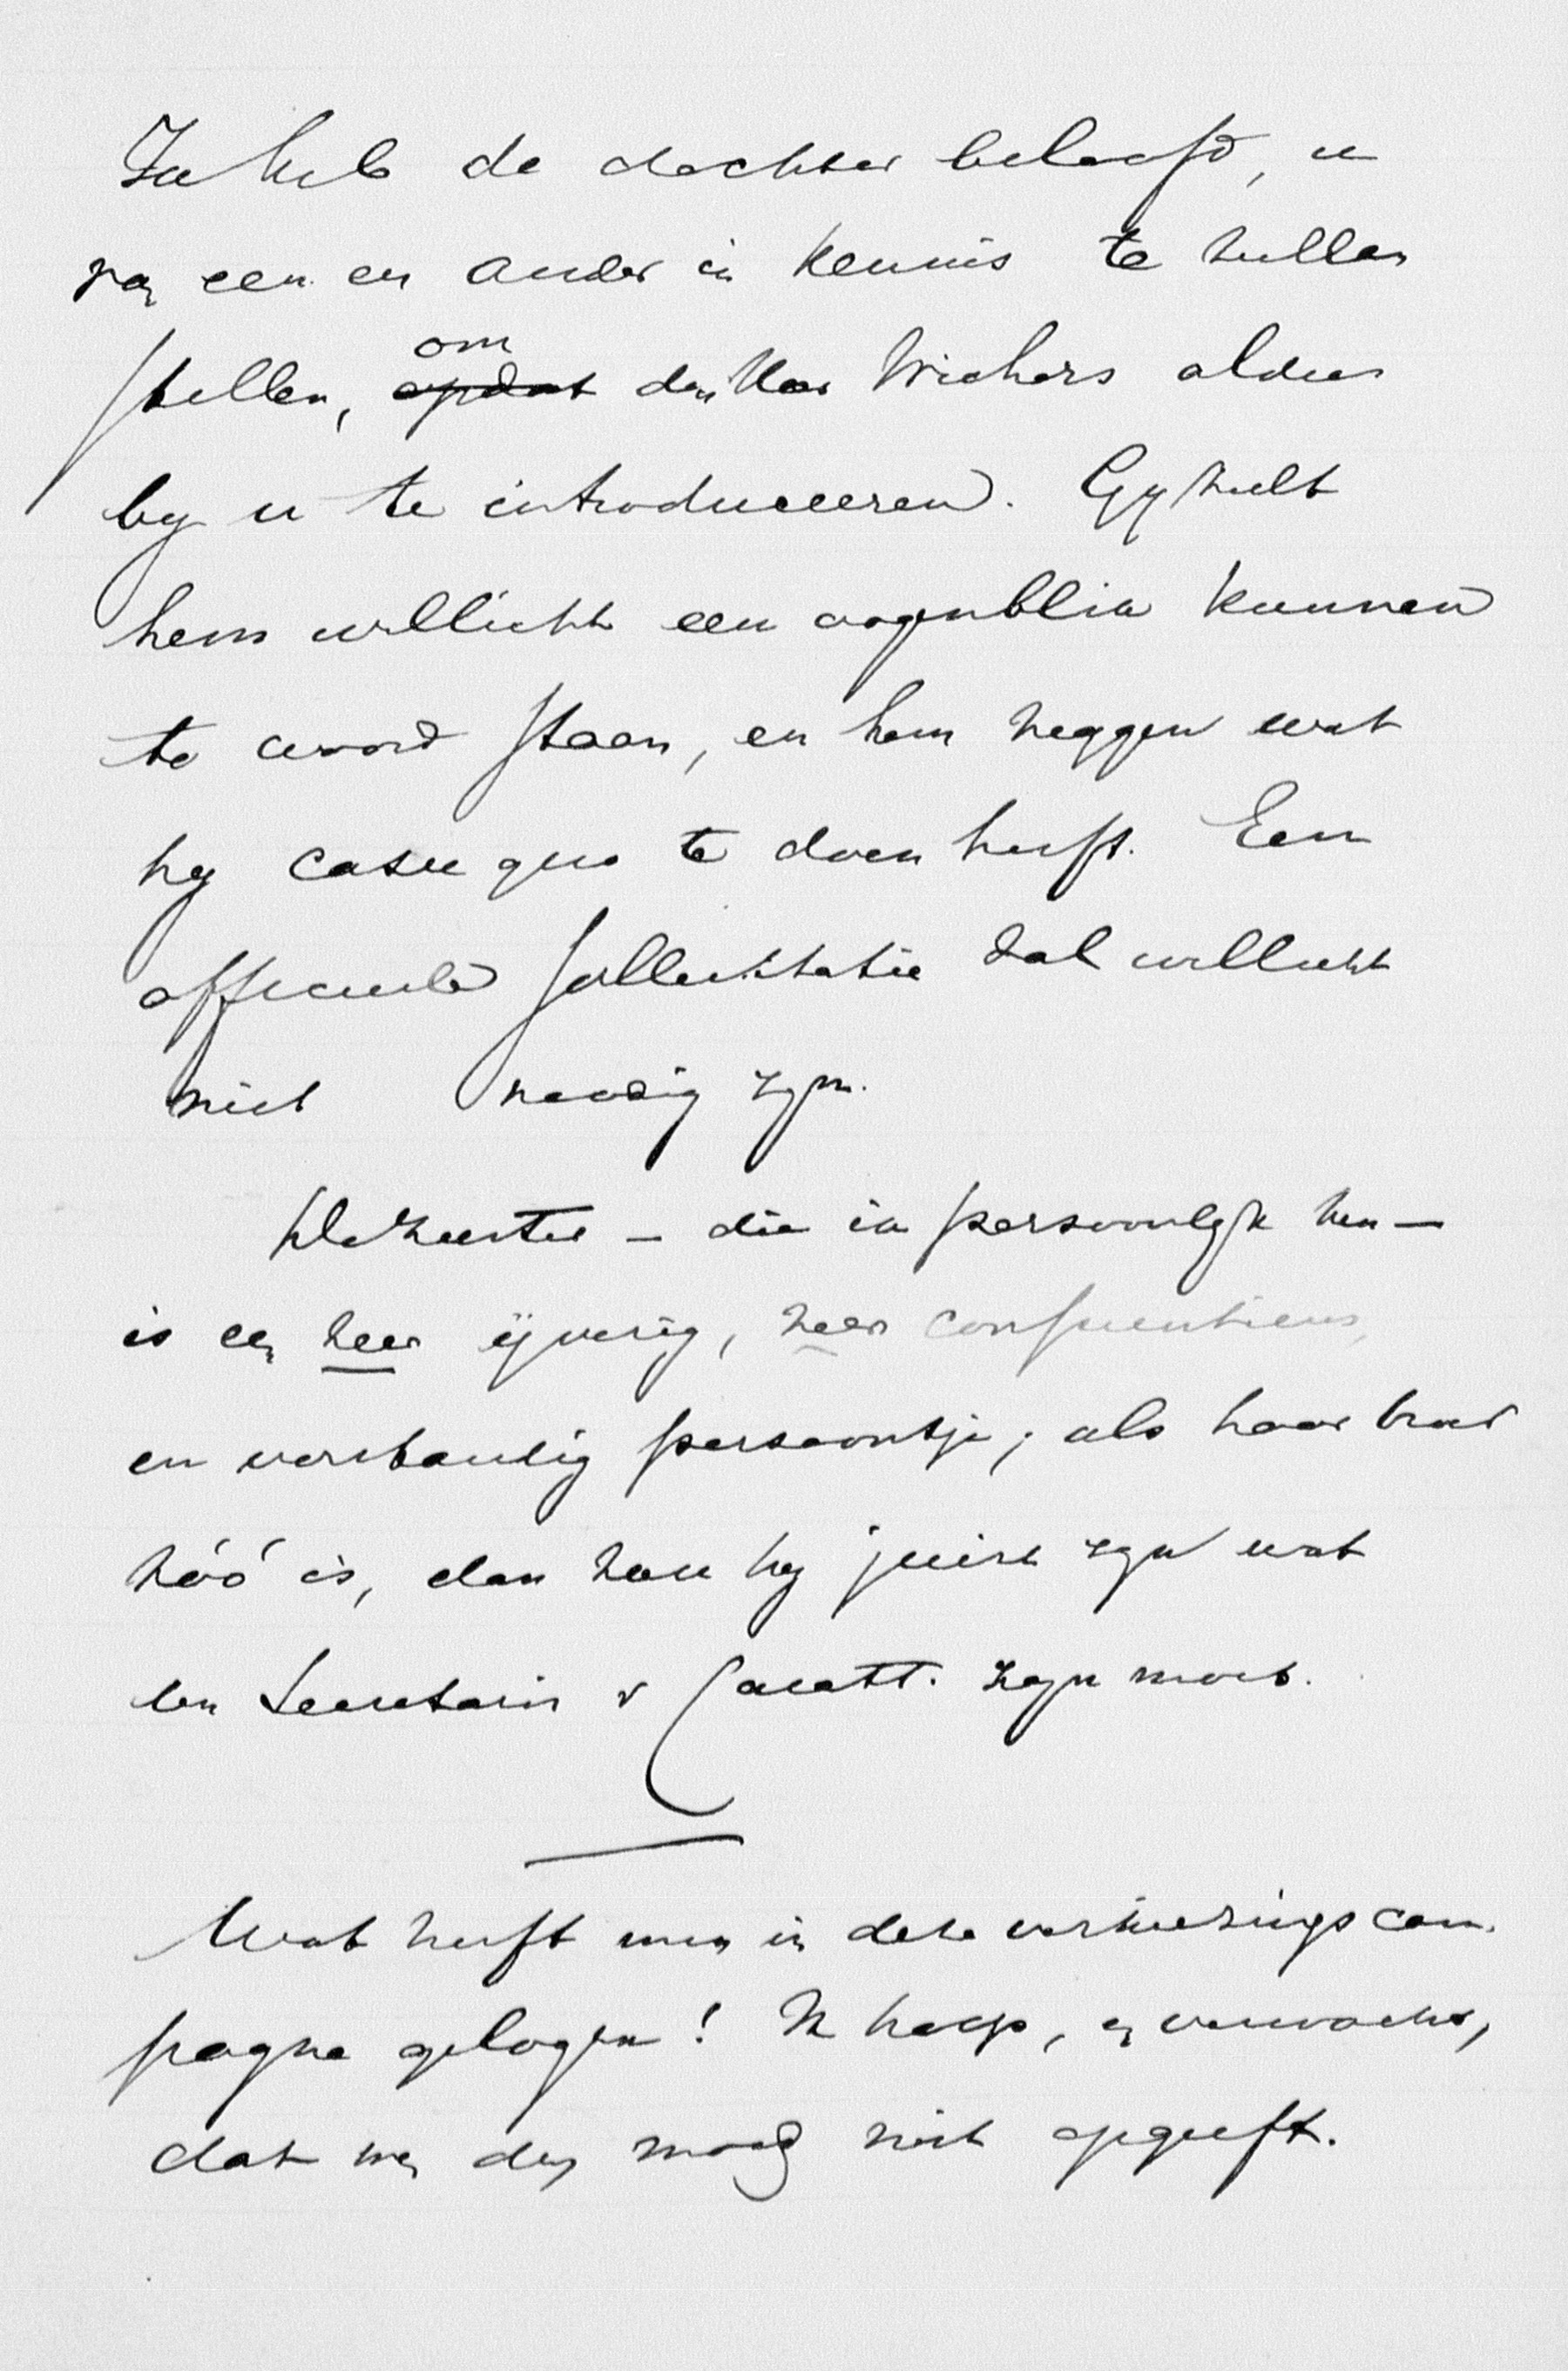 Ik heb de dochter beloofd, u
van een en ander in kennis te zullen
stellen, om opdat den Heer Wichers aldus
by u te introduceeren. Gy zult
hem wellicht een oogenblik kunnen
te woord staan, en hem zeggen wat
hy casu quo te doen heeft. Een
officieele sollicitatie zal wellicht
niet noodig zyn.
De zuster – die ik persoonlyk ken –
is een zeer ijverig, zeer consciëntieus,
en verstandig persoontje; als haar broer
zóó is, dan zou hy juist zyn wat
een Secretaris v zyn moet.
Wat heeft men in deze verkiezingscam-
pagne gelogen! Ik hoop, en verwacht,
dat men den moed niet opgeeft.